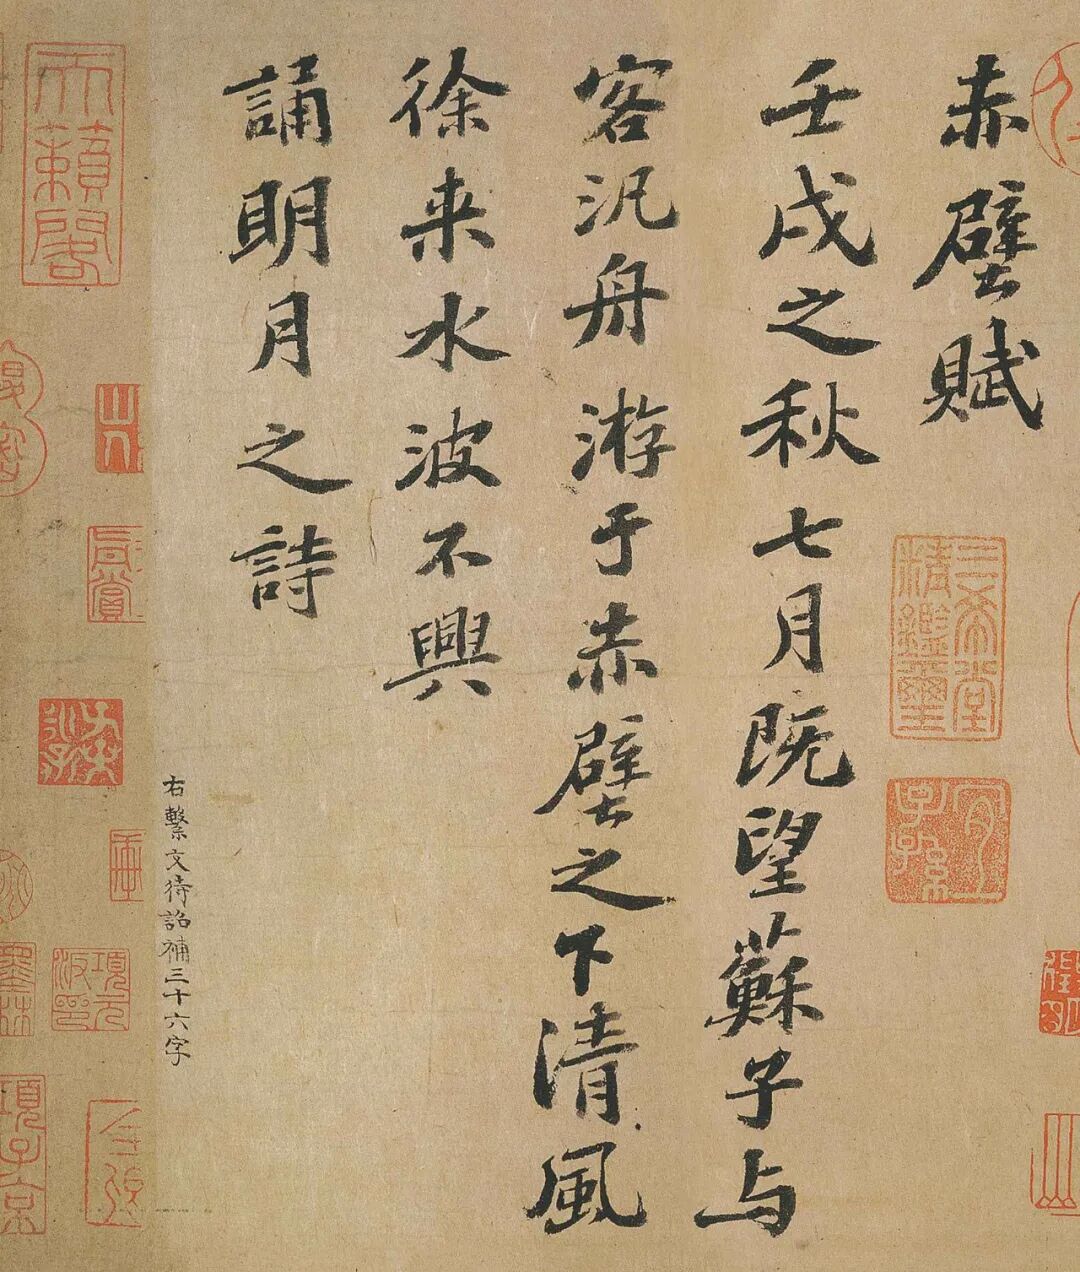 赤壁賦
三希堂精鑑璽
宜子孫
壬戌之秋七月既望蘇子与
客汎舟游于赤壁之下清風
徐来水波不興
誦明月之詩
右繫文待詔補三十六字
天籟閣
項元汴印